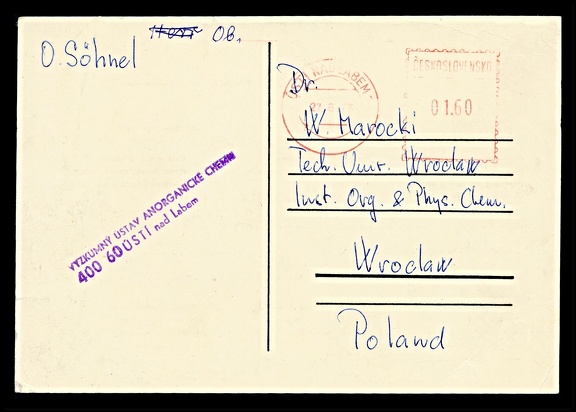 OB.
O. Söhnel
VÝZKUMNÝ ÚSTAV ANORGANICKÉ CHEMIE
400 60 ÚSTÍ nad Labem
ČESKOSLOVENSKO
01.60
LABEM
Dr.
W Marocki
Tech. Univ. Wroclaw
Inst. Org. & Phys. Chem.
Wroclaw
Poland